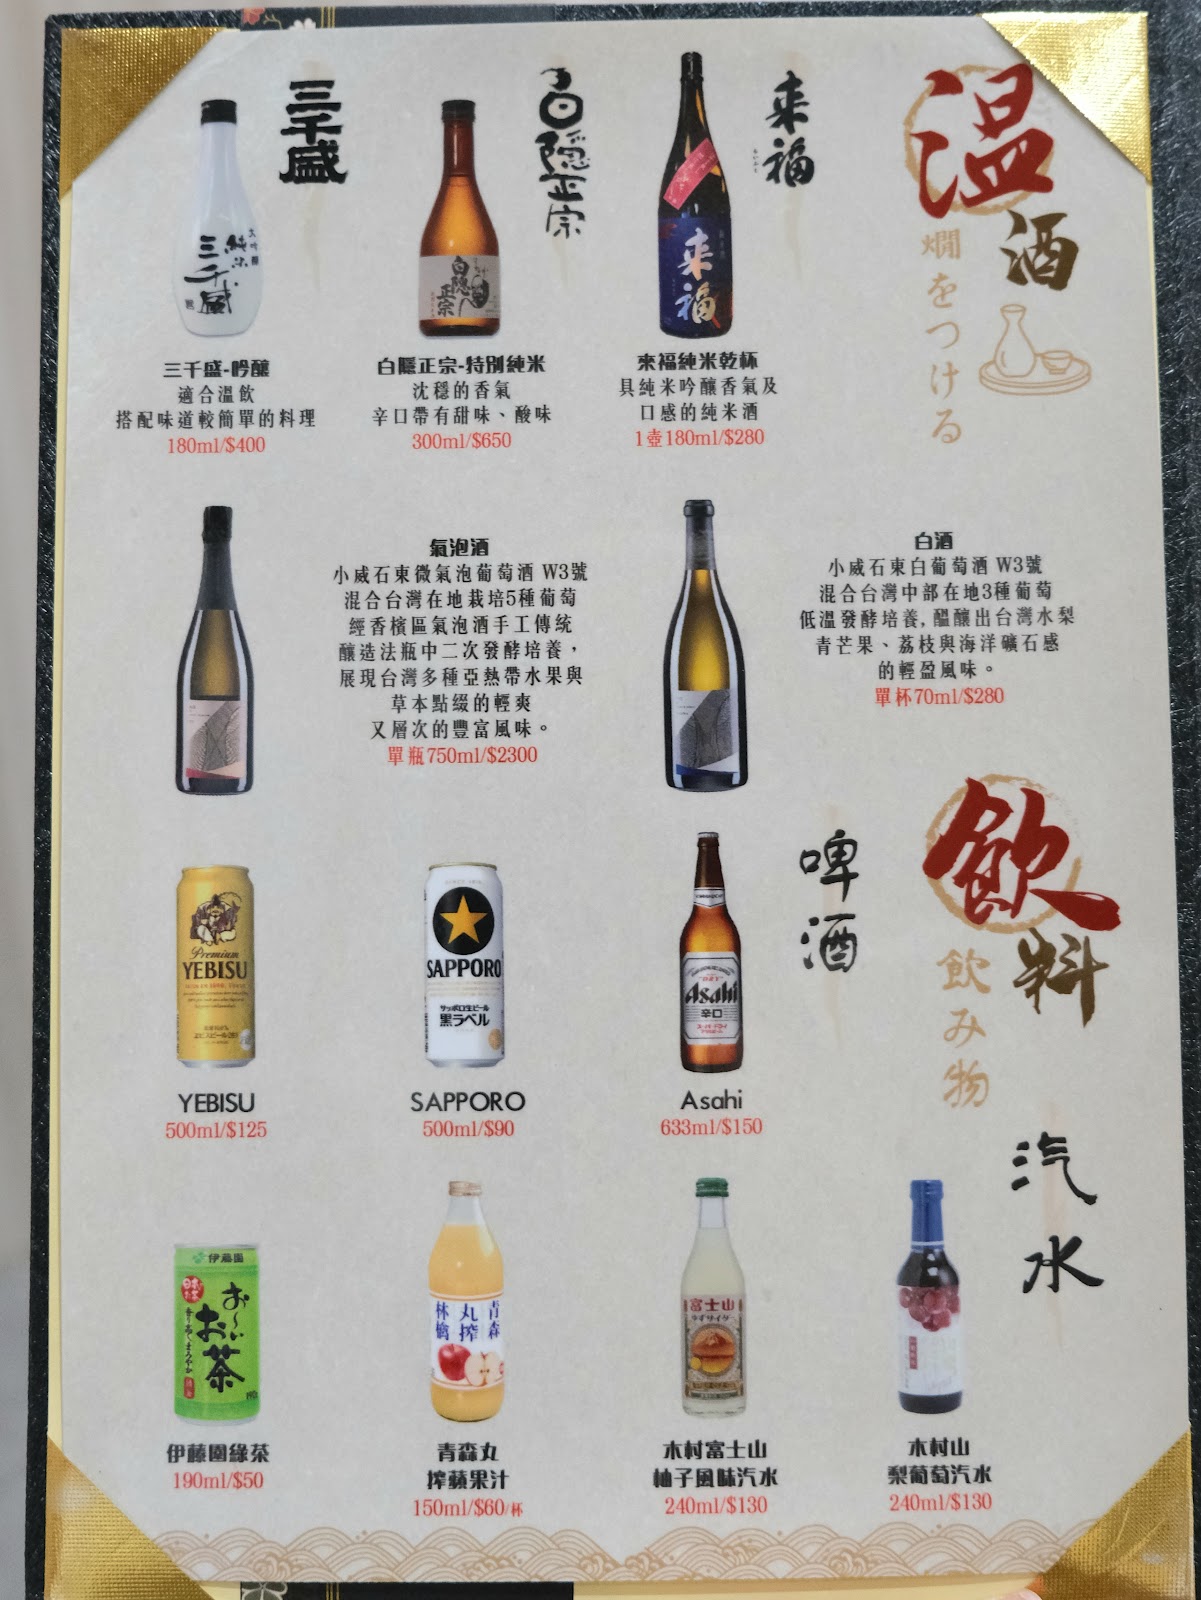 温酒
燗をつける
来福
白隱正宗
三千盛
大吟釀
純米
三千盛
白隱正宗
来福
三千盛-吟釀
適合溫飲
搭配味道較簡單的料理
180ml/$400
白隱正宗-特別純米
沈穩的香氣
辛口帶有甜味、酸味
300ml/$650
來福純米乾杯
具純米吟釀香氣及
口感的純米酒
1壺180ml/$280
氣泡酒
小威石東微氣泡葡萄酒 W3號
混合台灣在地栽培5種葡萄
經香檳區氣泡酒手工傳統
釀造法瓶中二次發酵培養，
展現台灣多種亞熱帶水果與
草本點綴的輕爽
又層次的豐富風味。
單瓶750ml/$2300
白酒
小威石東白葡萄酒 W3號
混合台灣中部在地3種葡萄
低溫發酵培養,醞釀出台灣水梨
青芒果、荔枝與海洋礦石感
的輕盈風味。
單杯70ml/$280
飲料
飲み物
啤酒
Premium
YEBISU
SAPPORO
サッポロ生ビール
黒ラベル
Asahi
辛口
YEBISU
500ml/$125
SAPPORO
500ml/$90
Asahi
633ml/$150
汽水
伊藤園
お〜いお茶
青森
丸搾
林檎
富士山
ゆずサイダー
伊藤園綠茶
190ml/$50
青森丸
搾蘋果汁
150ml/$60/杯
木村富士山
柚子風味汽水
240ml/$130
木村山
梨葡萄汽水
240ml/$130